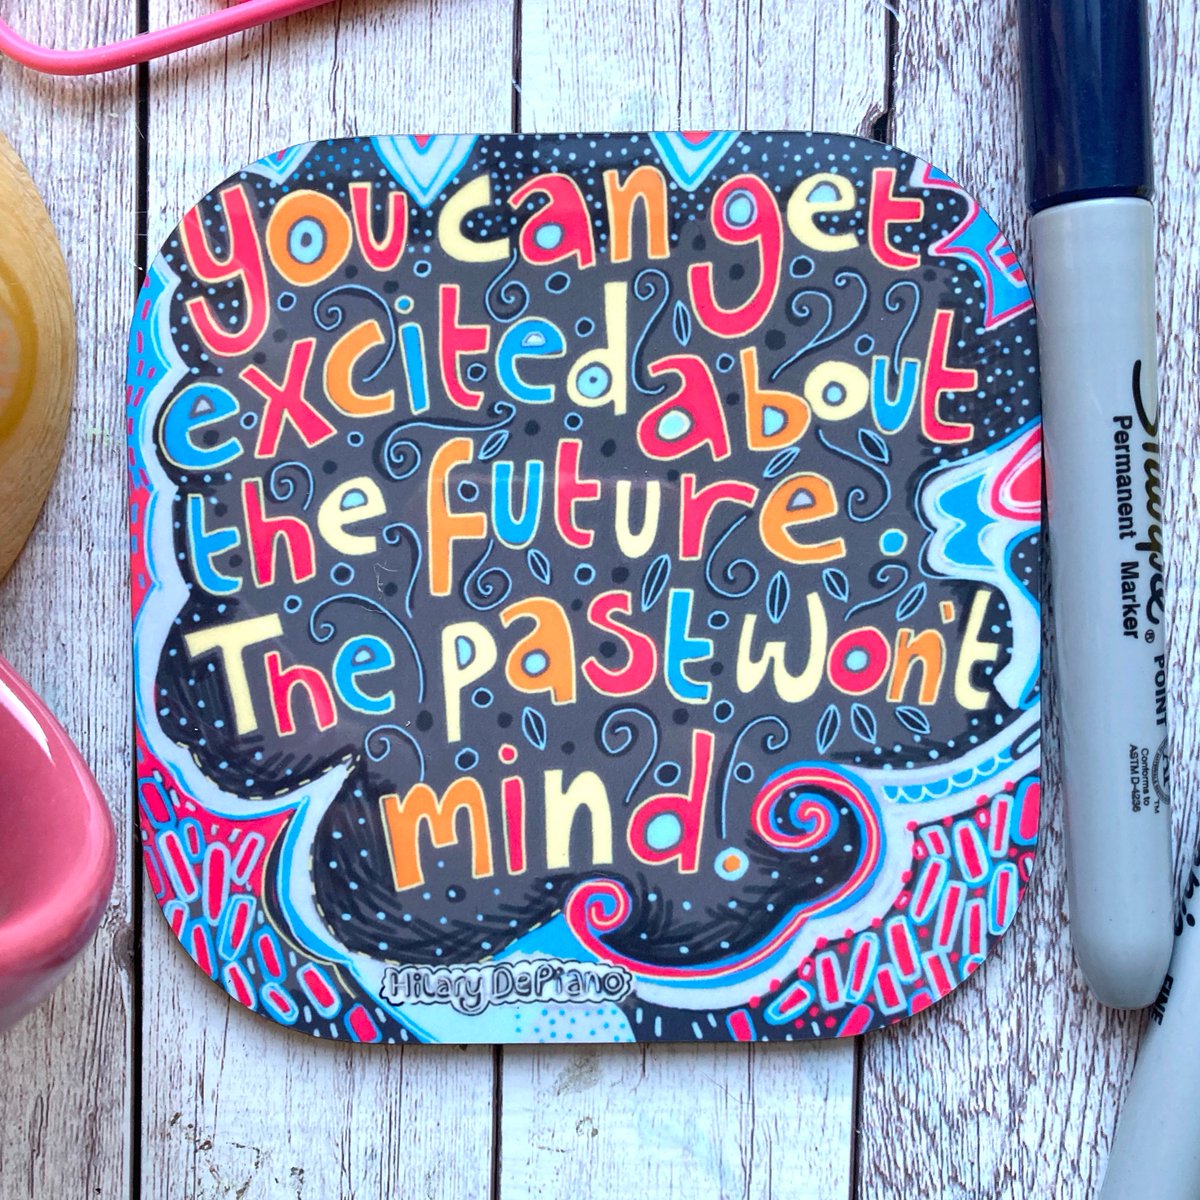 You can get
excited about
the future.
The past won't
mind.
Hilary DePiano
Sharpie®
Permanent Marker
POINT
AP
Conforms to
ASTM D-4236
TM
FINE